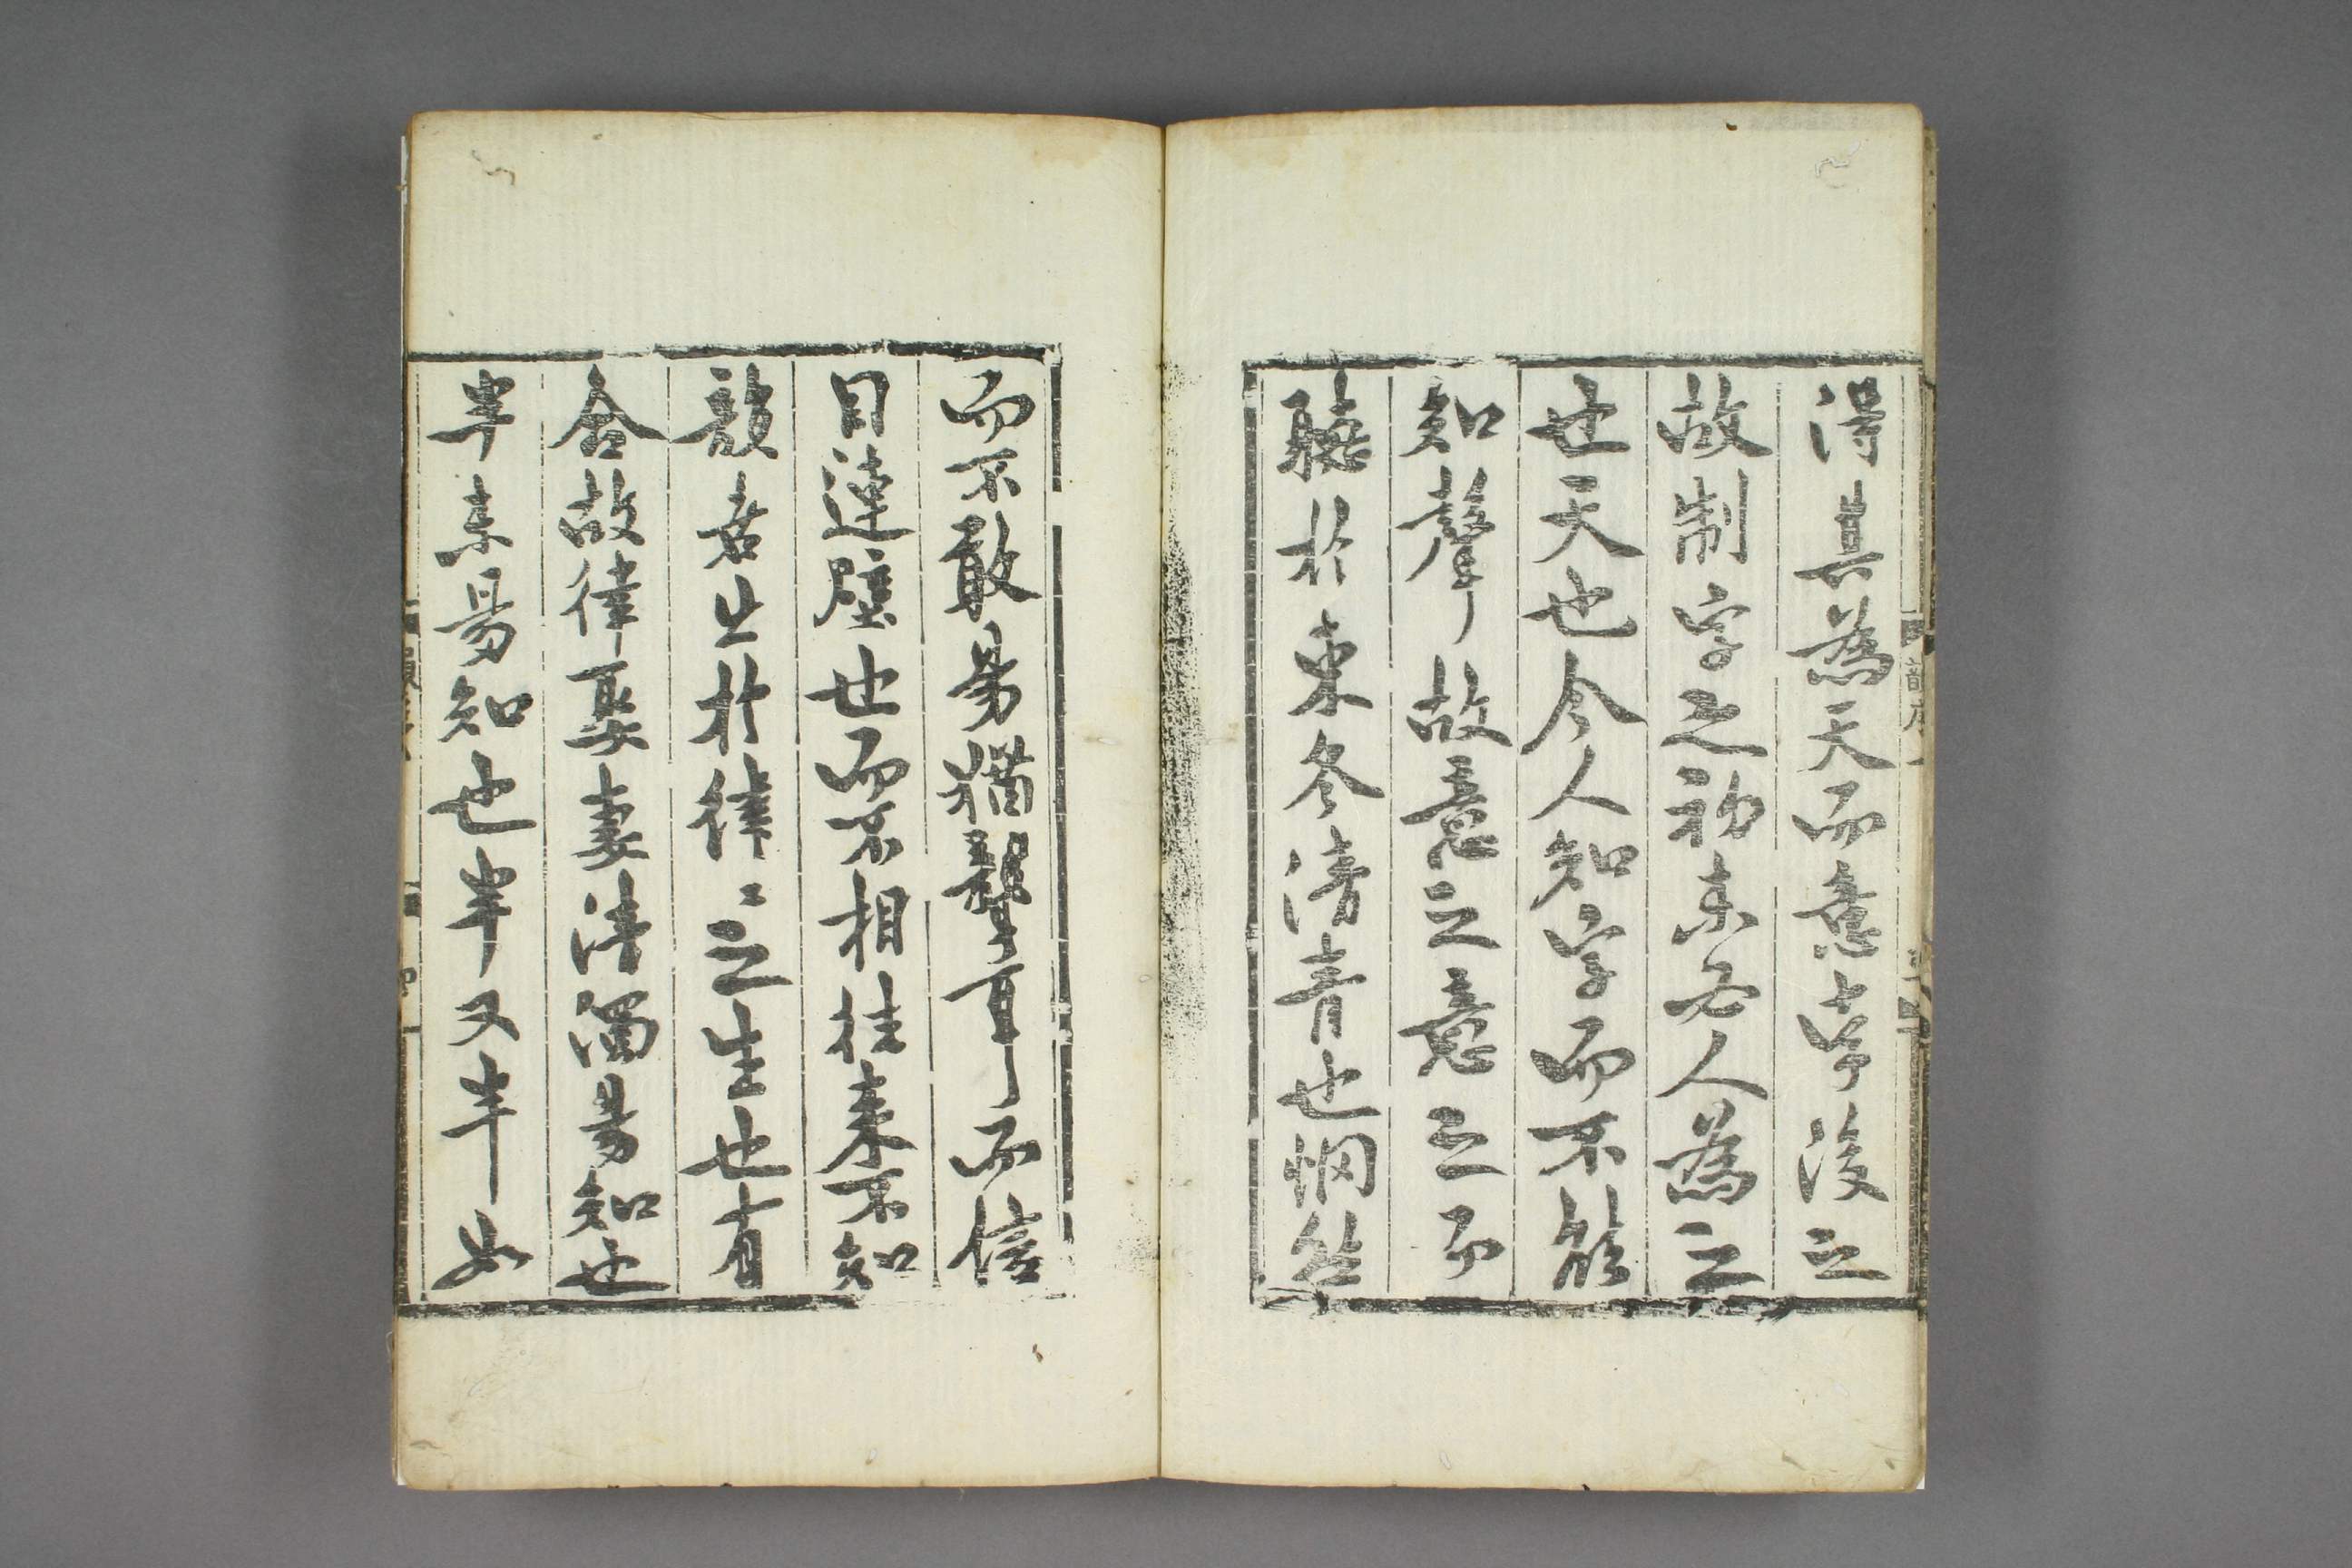 得其為天而意筆後之
故制字之初未必人為之
也天也今人知字而不能
知聲故意之意之而
聽於東冬清青也惘然
而不敢易猶聾耳而信
目蓮壁也而不相往來不知
韻者止於律〻之生也有
合故律娶妻清濁易知也
半未易知也半又半如